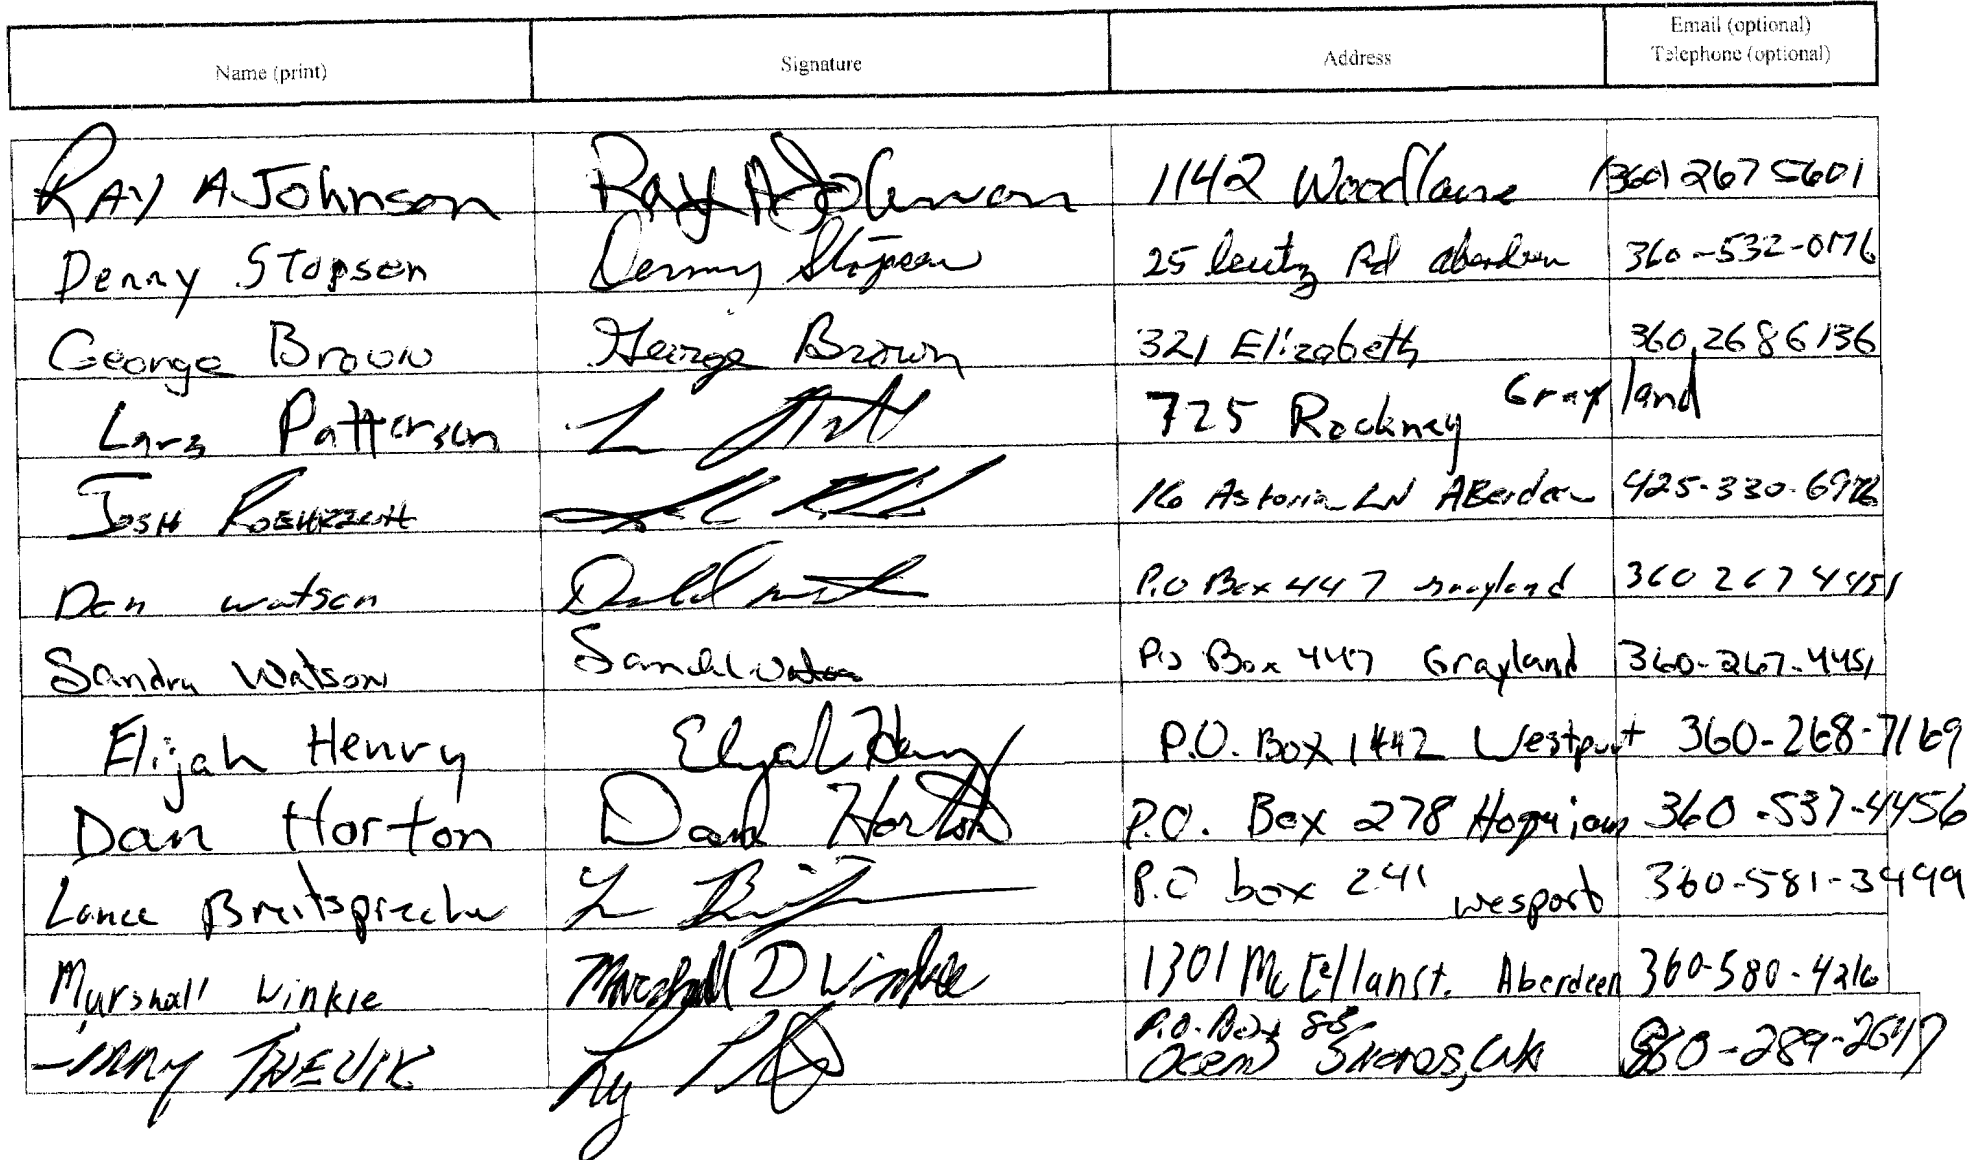 Name (print) Signature Address Email (optional)
Telephone (optional)
RAY A JOHNSON Ray A Johnson 1142 Woodlane (360) 267 5601
Denny Stopsen Denny Stopsen 25 leutz Rd aberdeen 360-532-0176
George Brown George Brown 321 Elizabeth 360 268 6136
Lars Patterson 725 Rockney Grayland
Josh 16 Astoria LN Aberdeen 425-330-6976
Dan Watson P.O Box 447 Grayland 360 267 4451
Sandra Watson Sandra Watson P.O Box 447 Grayland 360-267-4451
Elijah Henry Elijah Henry P.O. Box 1442 Westport 360-268-7169
Dan Horton Dan Horton P.O. Box 278 Hoquiam 360-537-4456
Lance Breitsprecher P.O box 241 wesport 360-581-3499
Marshall Winkie Marshall D Winkie 1301 McCellan st. Aberdeen 360-580-4216
P.O. Box 88
Ocean Shores, WA 360-289-2647